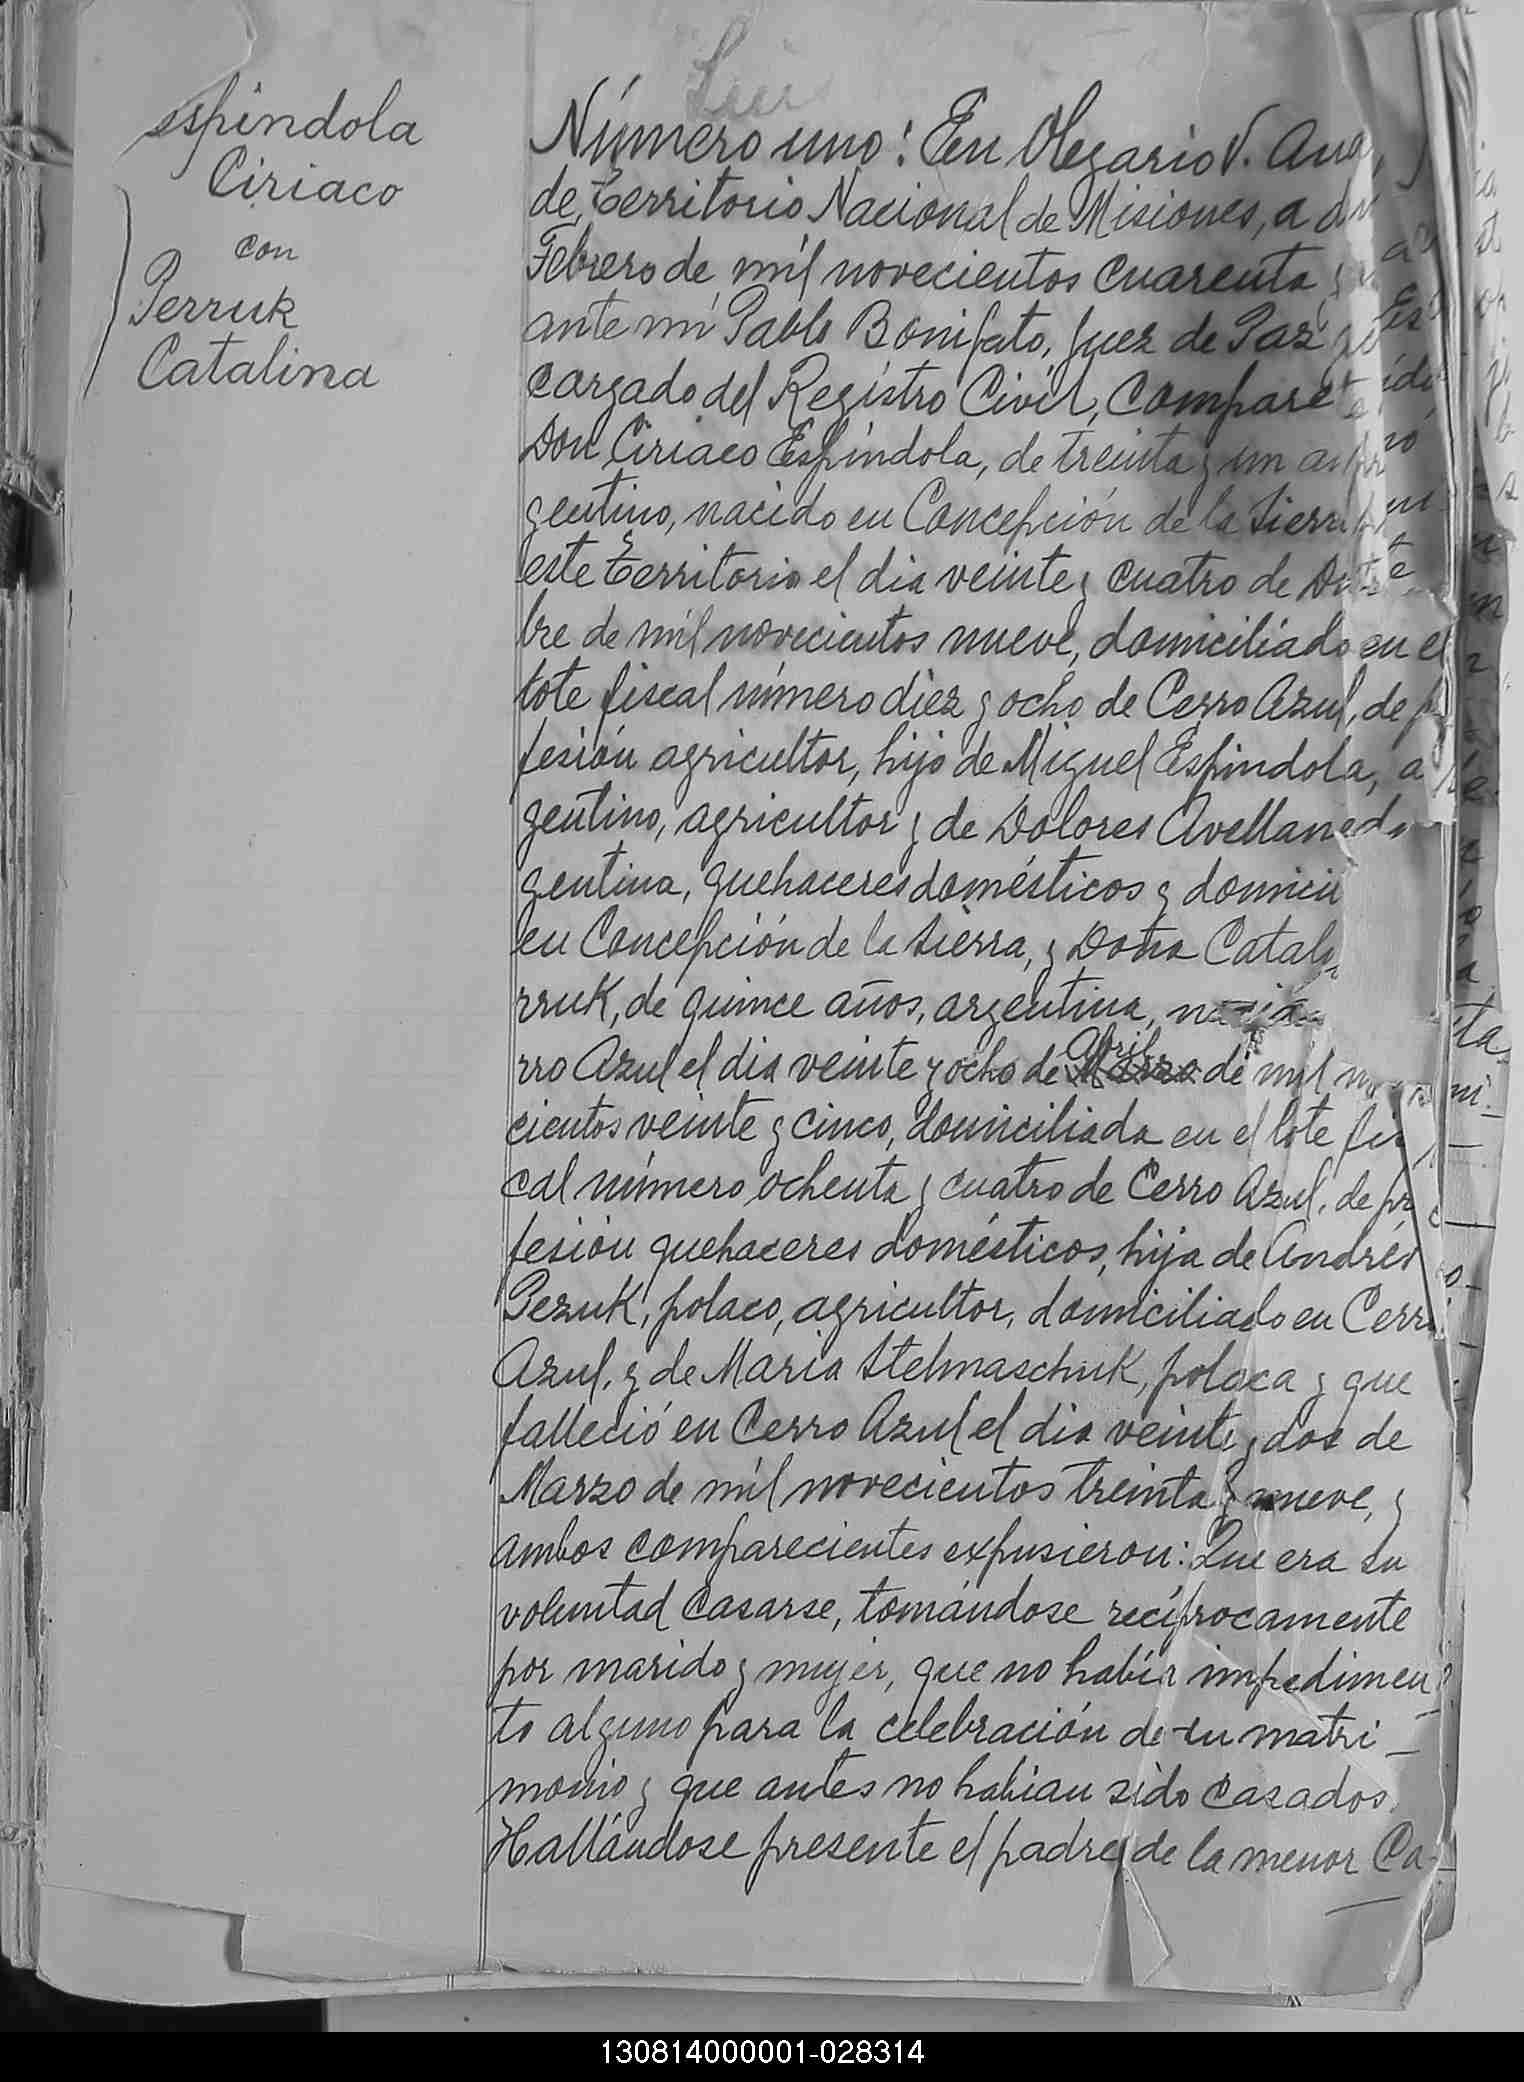 Espindola
Ciriaco
con
Perruk
Catalina
Número uno: En Olegario V. And
de, Territorio Nacional de Misiones, a
Febrero de mil novecientos cuarenta y
ante mi Pablo Bonifato, Juez de Paz
cargado del Registro Civil, Compare
Don Ciriaco Espíndola, de treinta y un
gentino, nacido en Concepción de la Sierra
este Territorio el dia veinte y cuatro de
bre de mil novecientos nueve, domiciliado en el
lote fiscal número diez y ocho de Cerro Azul, de
fesión agricultor, hijo de Miguel Espindola, a
gentino, agricultor y de Dolores Avellaneda
gentina, quehaceres domésticos y domicili
en Concepción de la Sierra, y Doña Catali
rruk, de quince años, argentina,
rro Azul el dia veinte y ocho de Abril Marzo de mil
cientos veinte y cinco, domiciliada en el lote fis
cal número ochenta y cuatro de Cerro Azul, de pr
fesión quehaceres domésticos, hija de Andrés
Pezuk, polaco, agricultor, domiciliado en Cerro
Azul, y de Maria Stelmaschuk, polaca y que
falleció en Cerro Azul el dia veinte y dos de
Marzo de mil novecientos treinta y nueve, y
ambos comparecientes expusieron: Que era su
voluntad casarse, tomándose recíprocamente
por marido y mujer, que no había impedimen
to alguno para la celebración de su matri-
monio y que antes no habian sido casados.
Hallándose presente el padre de la menor Ca-
130814000001-028314